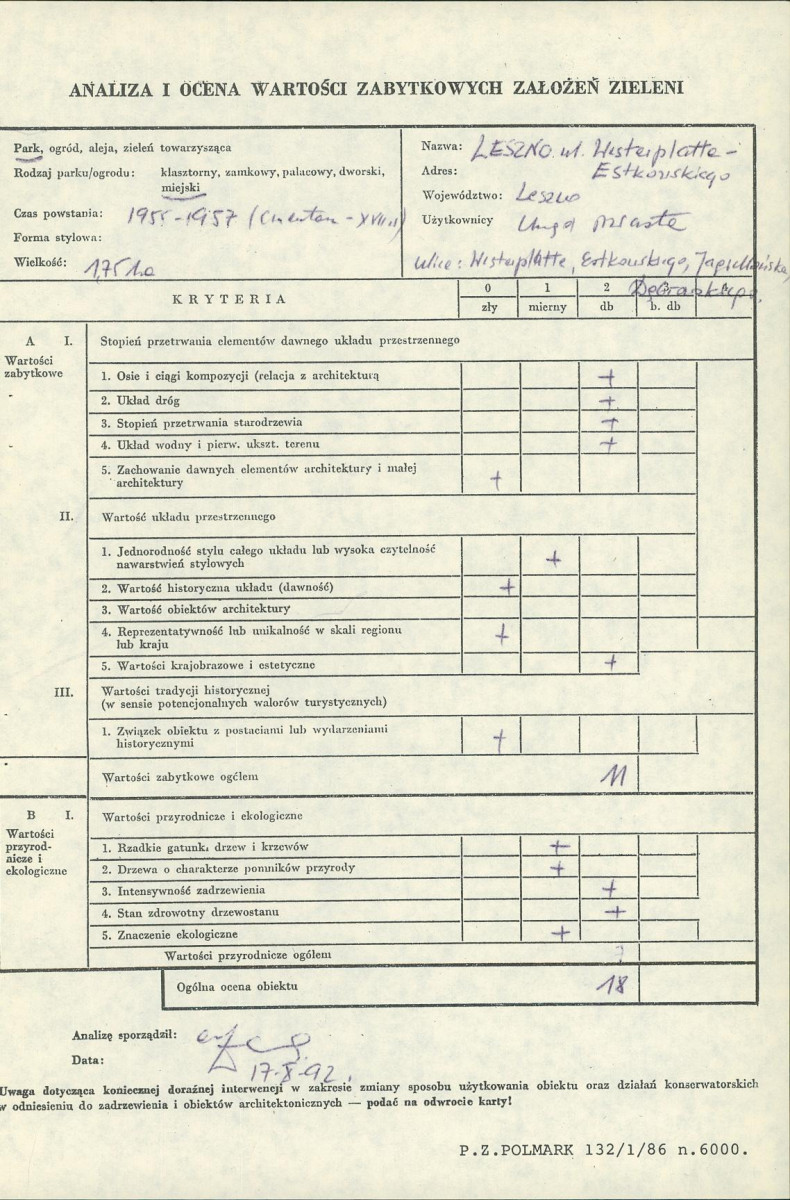 ANALIZA I OCENA WARTOŚCI ZABYTKOWYCH ZAŁOŻEŃ ZIELENI
Park, ogród, aleja, zieleń towarzysząca
Rodzaj parku/ogrodu: klasztorny, zamkowy, pałacowy, dworski,
miejski
Czas powstania: 1955-1957 (Cmentarz - XVIII)
Forma stylowa:
Wielkość: 1,75 ha
Nazwa: LESZNO ul. Westerplatte -
Adres: Estkowskiego
Województwo: Leszno
Użytkownicy Urząd Miasta
Ulice: Westerplatte, Estkowskiego, Jagiellońska,
KRYTERIA
0 1 2
zły mierny db b. db
A I. Stopień przetrwania elementów dawnego układu przestrzennego
Wartości
zabytkowe
1. Osie i ciągi kompozycji (relacja z architekturą +
2. Układ dróg +
3. Stopień przetrwania starodrzewia +
4. Układ wodny i pierw. ukszt. terenu +
5. Zachowanie dawnych elementów architektury i małej
architektury +
II. Wartość układu przestrzennego
1. Jednorodność stylu całego układu lub wysoka czytelność
nawarstwień stylowych +
2. Wartość historyczna układu (dawność) +
3. Wartość obiektów architektury
4. Reprezentatywność lub unikalność w skali regionu
lub kraju +
5. Wartości krajobrazowe i estetyczne +
III. Wartości tradycji historycznej
(w sensie potencjonalnych walorów turystycznych)
1. Związek obiektu z postaciami lub wydarzeniami
historycznymi +
Wartości zabytkowe ogółem 11
B I. Wartości przyrodnicze i ekologiczne
Wartości
przyrod-
nicze i
ekologiczne
1. Rzadkie gatunki drzew i krzewów +
2. Drzewa o charakterze pomników przyrody +
3. Intensywność zadrzewienia +
4. Stan zdrowotny drzewostanu +
5. Znaczenie ekologiczne +
Wartości przyrodnicze ogółem
Ogólna ocena obiektu 18
Analizę sporządził:
Data: 17-X-92.
Uwaga dotycząca koniecznej doraźnej interwencji w zakresie zmiany sposobu użytkowania obiektu oraz działań konserwatorskich
w odniesieniu do zadrzewienia i obiektów architektonicznych — podać na odwrocie karty!
P.Z.POLMARK 132/1/86 n.6000.